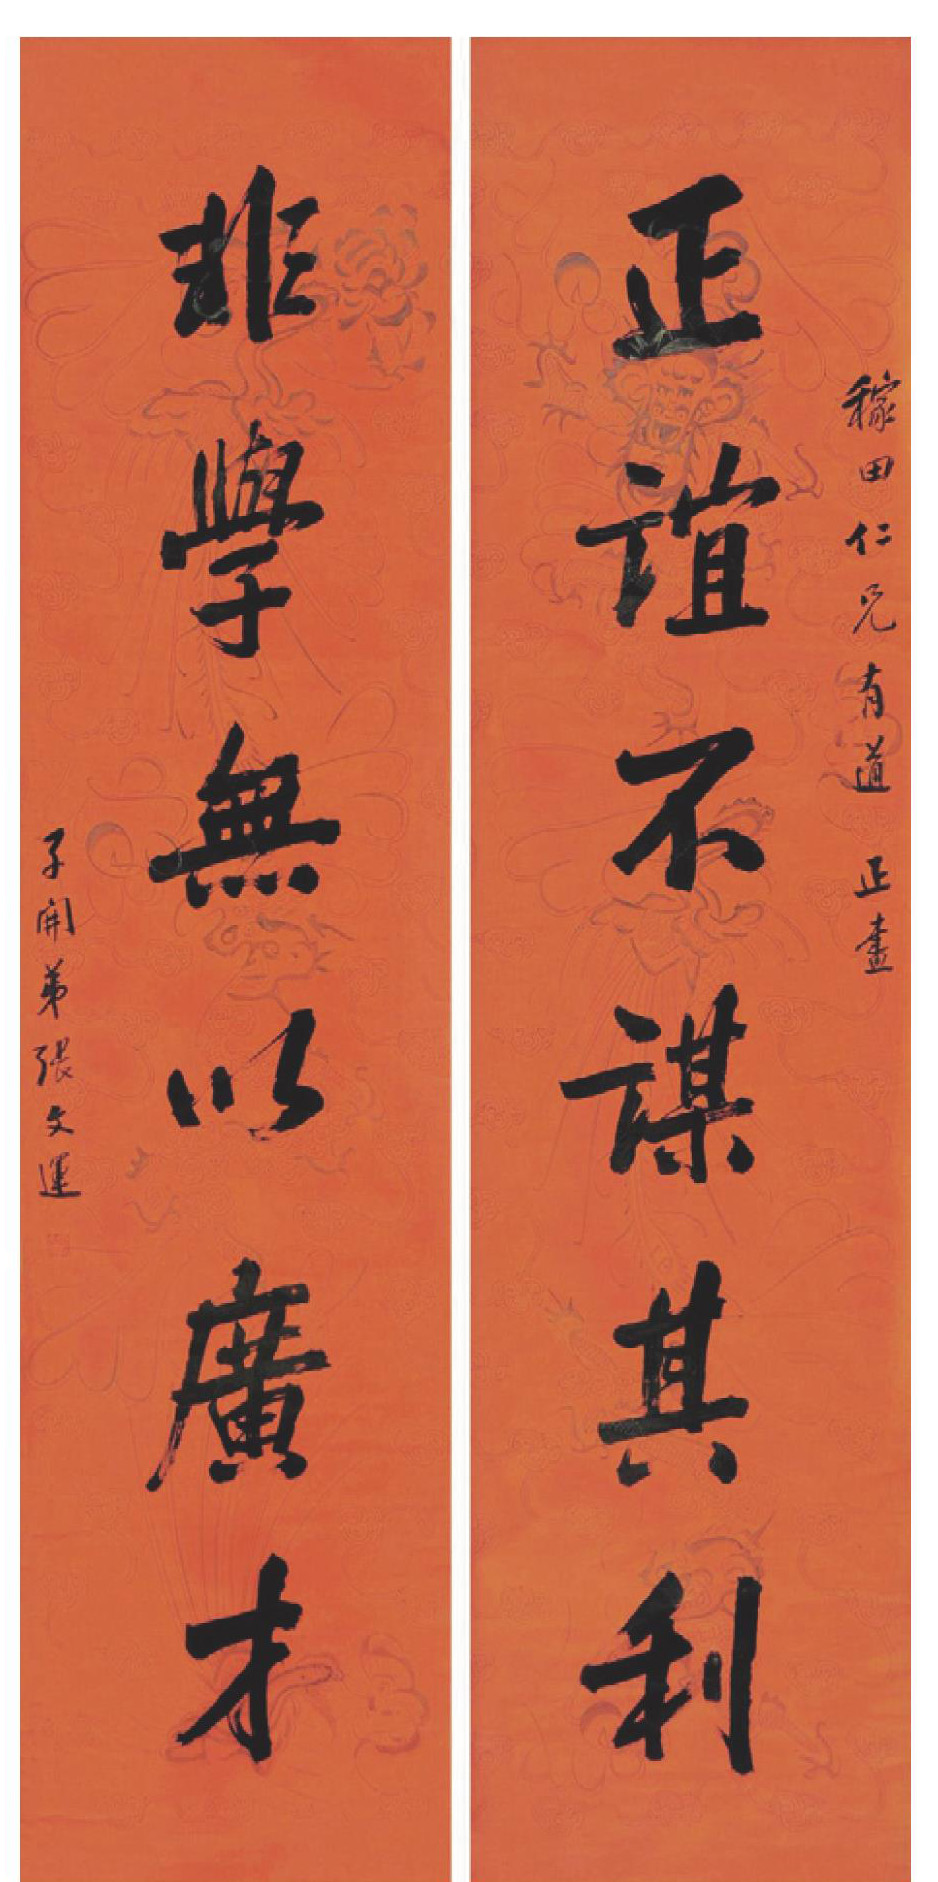 稼田仁兄有道 正畫
正誼不謀其利
非學無以廣才
子開弟張文運